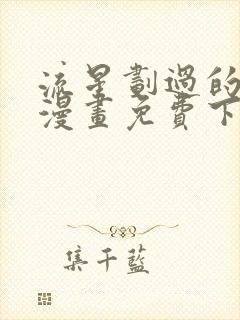 流星劃過的
漫畫免費下
集千藍